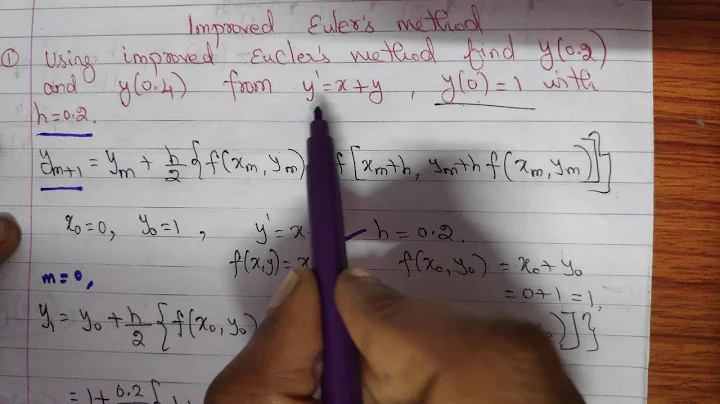 Improved Euler's method
① Using improved Eucler's method find y(0.2)
and y(0.4) from y' = x + y , y(0) = 1 with
h = 0.2.
y_{m+1} = y_m + h/2 { f(x_m, y_m) f[x_m+h, y_m+h f(x_m, y_m)]}
x_0 = 0, y_0 = 1 , y' = x h = 0.2.
f(x,y) = x f(x_0, y_0) = x_0 + y_0
m = 0, = 0 + 1 = 1.
y_1 = y_0 + h/2 { f(x_0, y_0) )]}
= 1 + 0.2